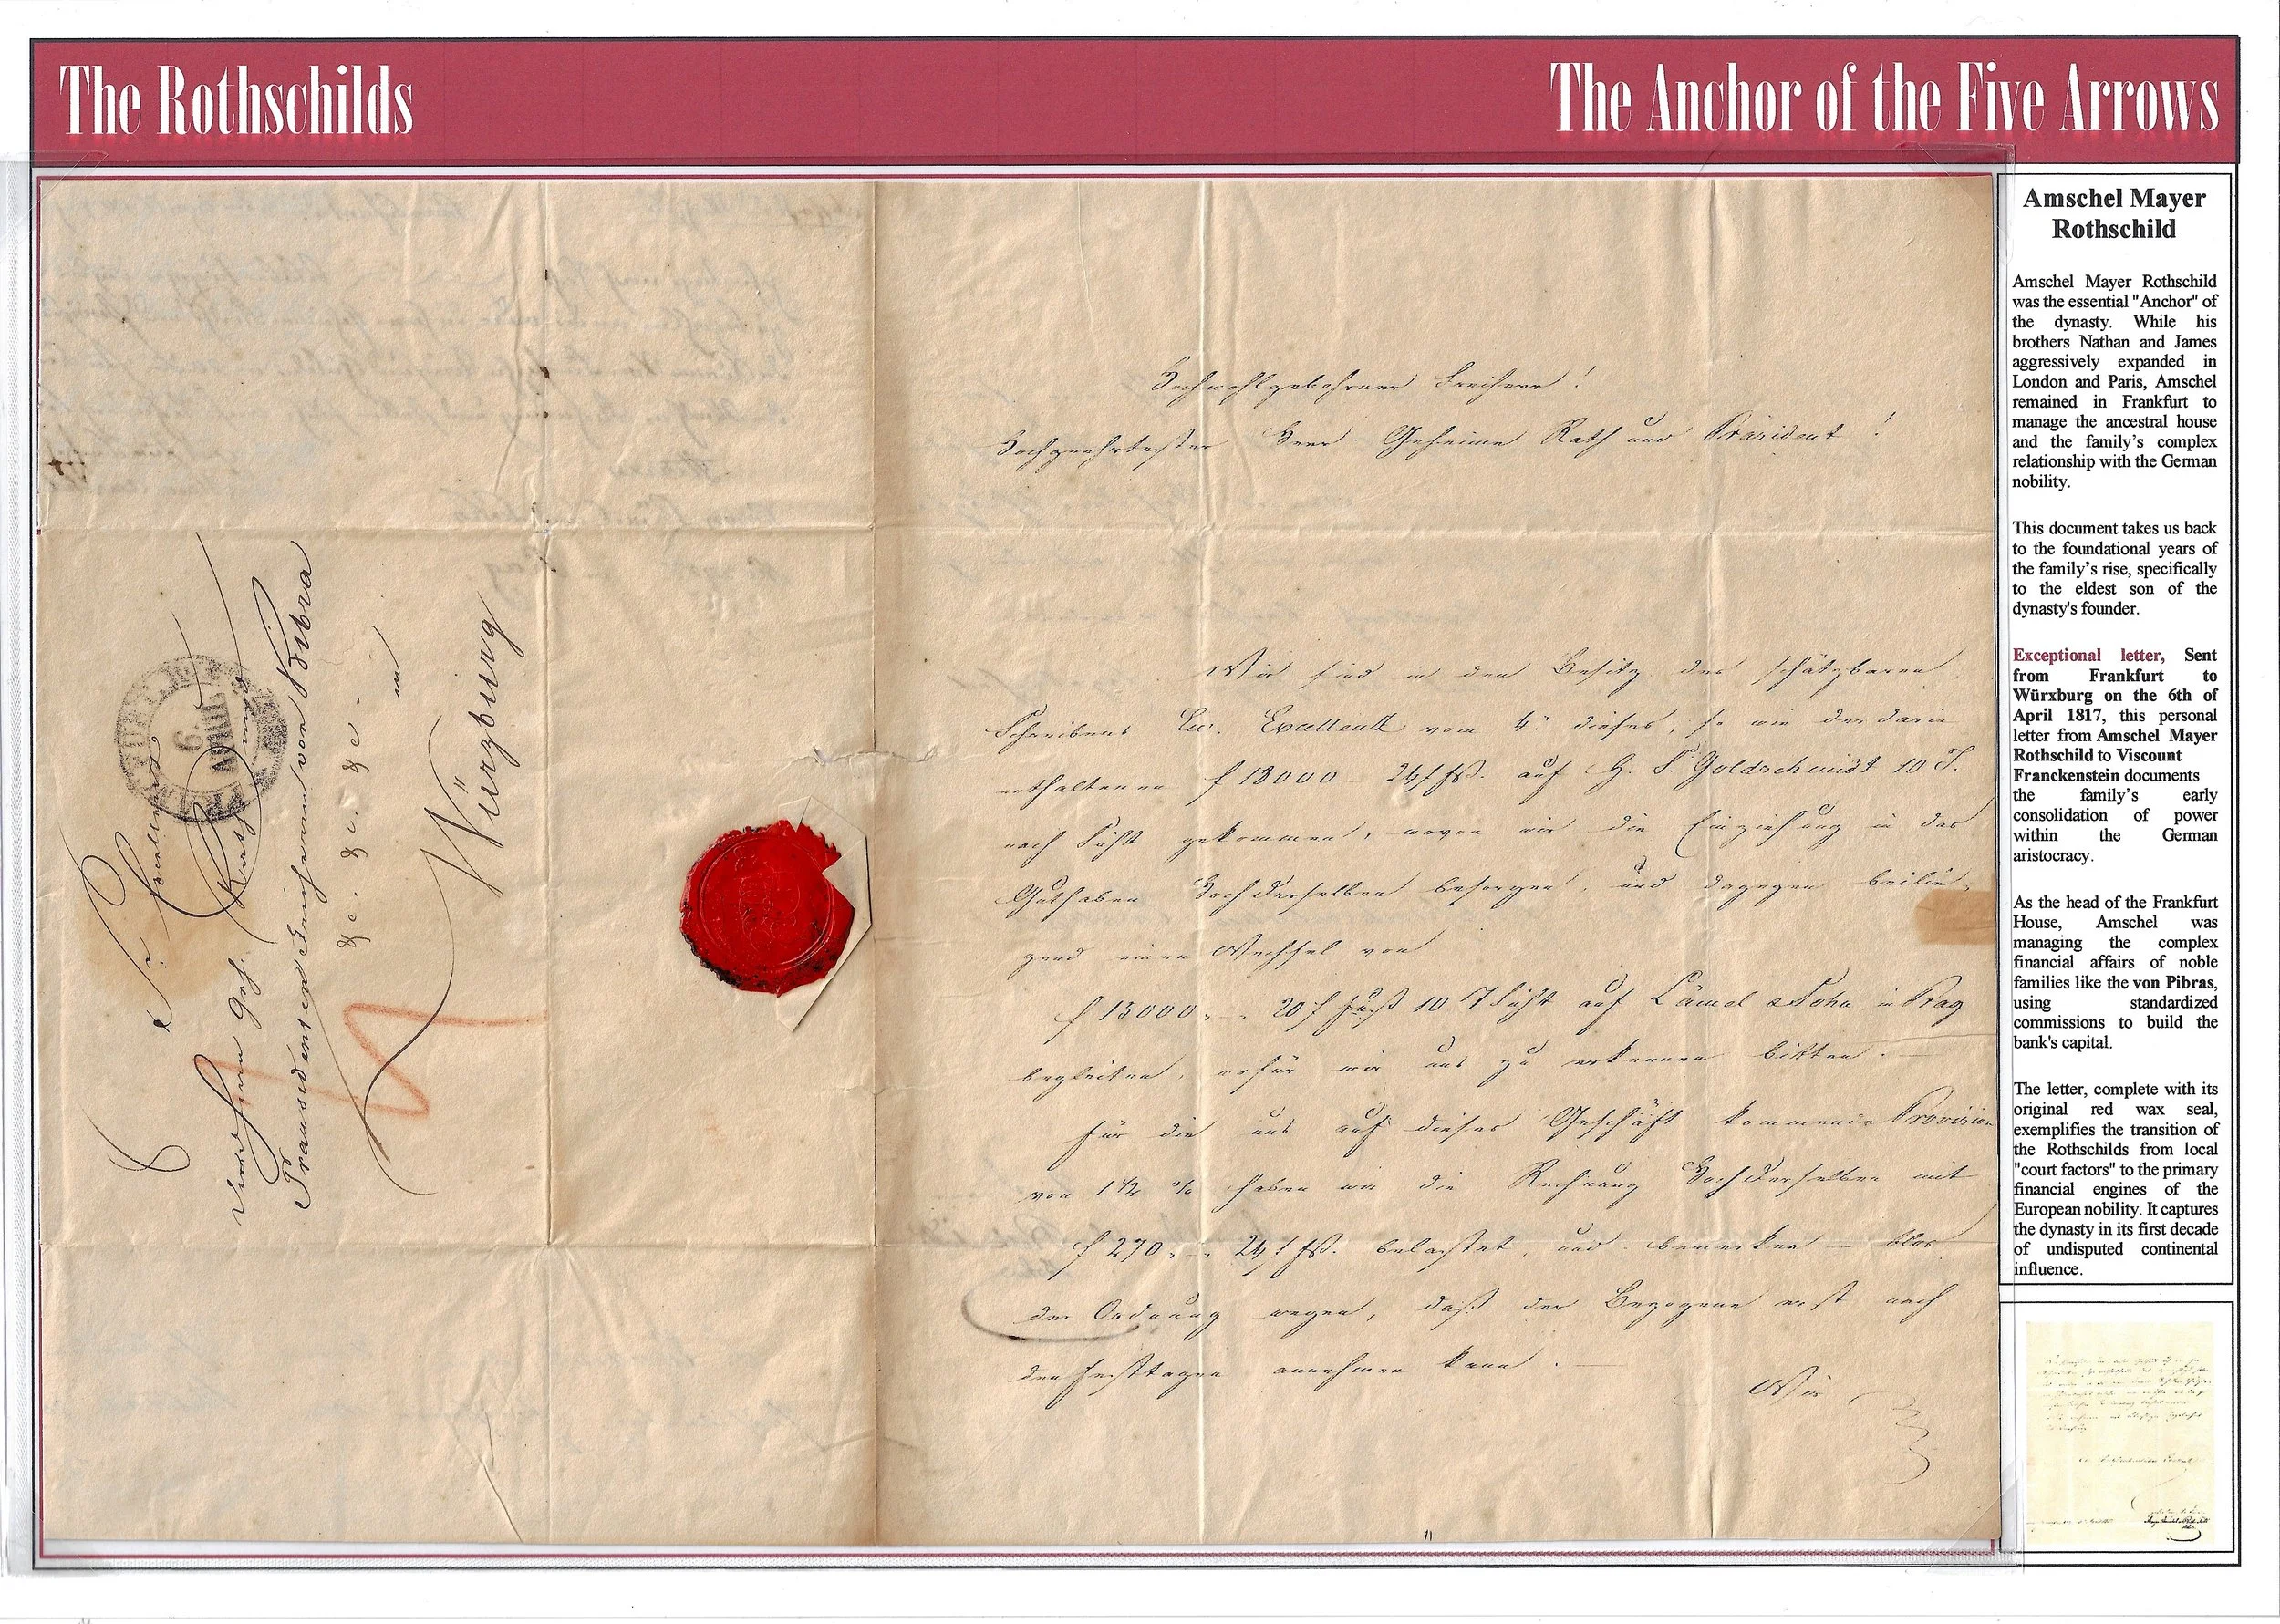 The Rothschilds
The Anchor of the Five Arrows
Sr Excellenz
dem Herrn Geh. Rath und
Praesidenten Freiherrn von Bibra
&c. &c. &c.
in
Würzburg
FRANKFURT
6
APRIL
Hochwohlgebohrner Freiherr!
Hochgeehrtester Herr Geheime Rath und Präsident!
Wir sind in dem Besitz des schätzbaren
Schreibens Eur. Excellenz vom 4: dieses, so wie der darin
enthaltenen f 18000 - 24 f fß. auf H. S. Goldschmidt 10 T.
nach Sicht gekommen, wovon wir die Einziehung in das
Guthaben Hochderselben besorgen, und dagegen beilie-
gend einen Wechsel von
f 15000 - 20 f Fuß 10 T Sicht auf Lämel & Sohn in Prag
begleiten, wofür wir uns zu erkennen bitten. —
Für die uns auf dieses Geschäft kommende Provision
von 1 1/2 % haben wir die Rechnung Hochderselben mit
f 270 - 24 f fß. belastet, und bemerken — blos
der Ordnung wegen, daß der Bezogene erst nach
den Festtagen annehmen kann. —
Wir
Amschel Mayer
Rothschild
Amschel Mayer Rothschild
was the essential "Anchor" of
the dynasty. While his
brothers Nathan and James
aggressively expanded in
London and Paris, Amschel
remained in Frankfurt to
manage the ancestral house
and the family's complex
relationship with the German
nobility.
This document takes us back
to the foundational years of
the family's rise, specifically
to the eldest son of the
dynasty's founder.
Exceptional letter, Sent
from Frankfurt to
Würxburg on the 6th of
April 1817, this personal
letter from Amschel Mayer
Rothschild to Viscount
Franckenstein documents
the family's early
consolidation of power
within the German
aristocracy.
As the head of the Frankfurt
House, Amschel was
managing the complex
financial affairs of noble
families like the von Pibras,
using standardized
commissions to build the
bank's capital.
The letter, complete with its
original red wax seal,
exemplifies the transition of
the Rothschilds from local
"court factors" to the primary
financial engines of the
European nobility. It captures
the dynasty in its first decade
of undisputed continental
influence.